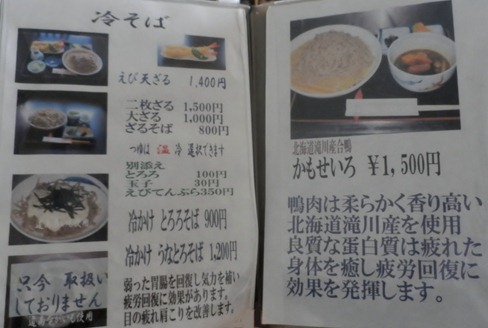 冷そば
えび天ざる 1,400円
二枚ざる 1,500円
大ざる 1,000円
ざるそば 800円
つゆは 温 冷 選択できます
別添え
とろろ 100円
玉子 30円
えびてんぷら350円
冷かけ とろろそば 900円
冷かけ うなとろそば 1,200円
弱った胃腸を回復し気力を補い
疲労回復に効果があります。
目の疲れ肩こりを改善します。
只今 取扱い
しておりません
使用
北海道滝川産合鴨
かもせいろ ¥1,500円
鴨肉は柔らかく香り高い
北海道滝川産を使用
良質な蛋白質は疲れた
身体を癒し疲労回復に
効果を発揮します。